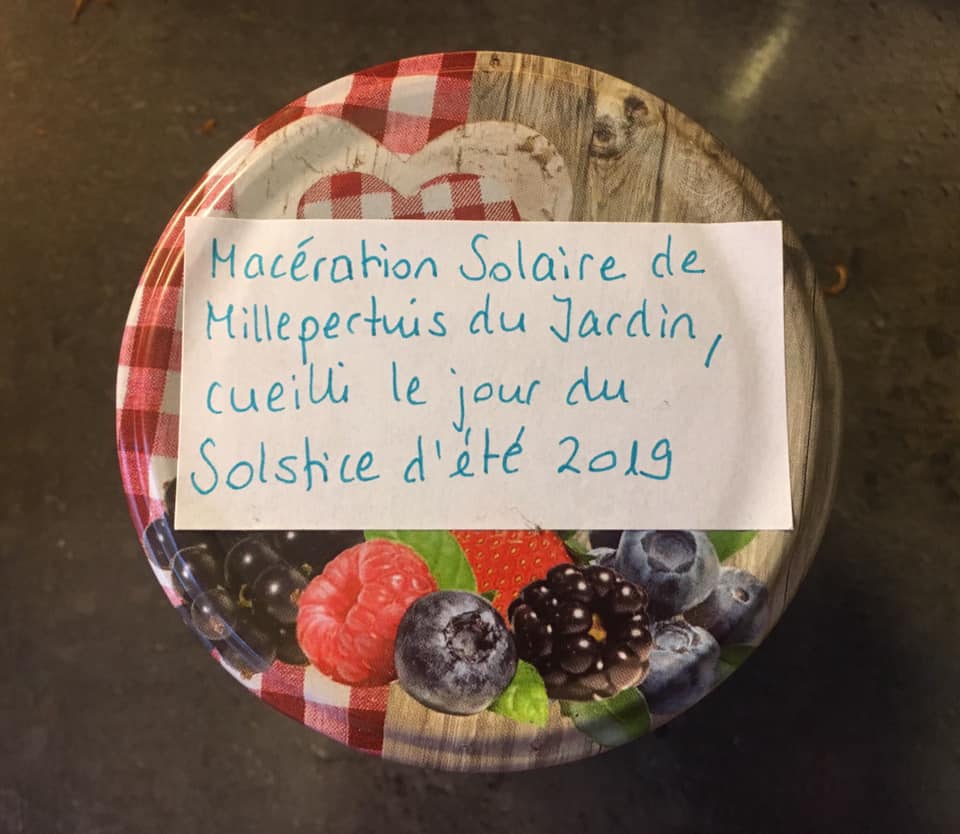 Macération Solaire de
Millepertuis du Jardin,
cueilli le jour du
Solstice d'été 2019